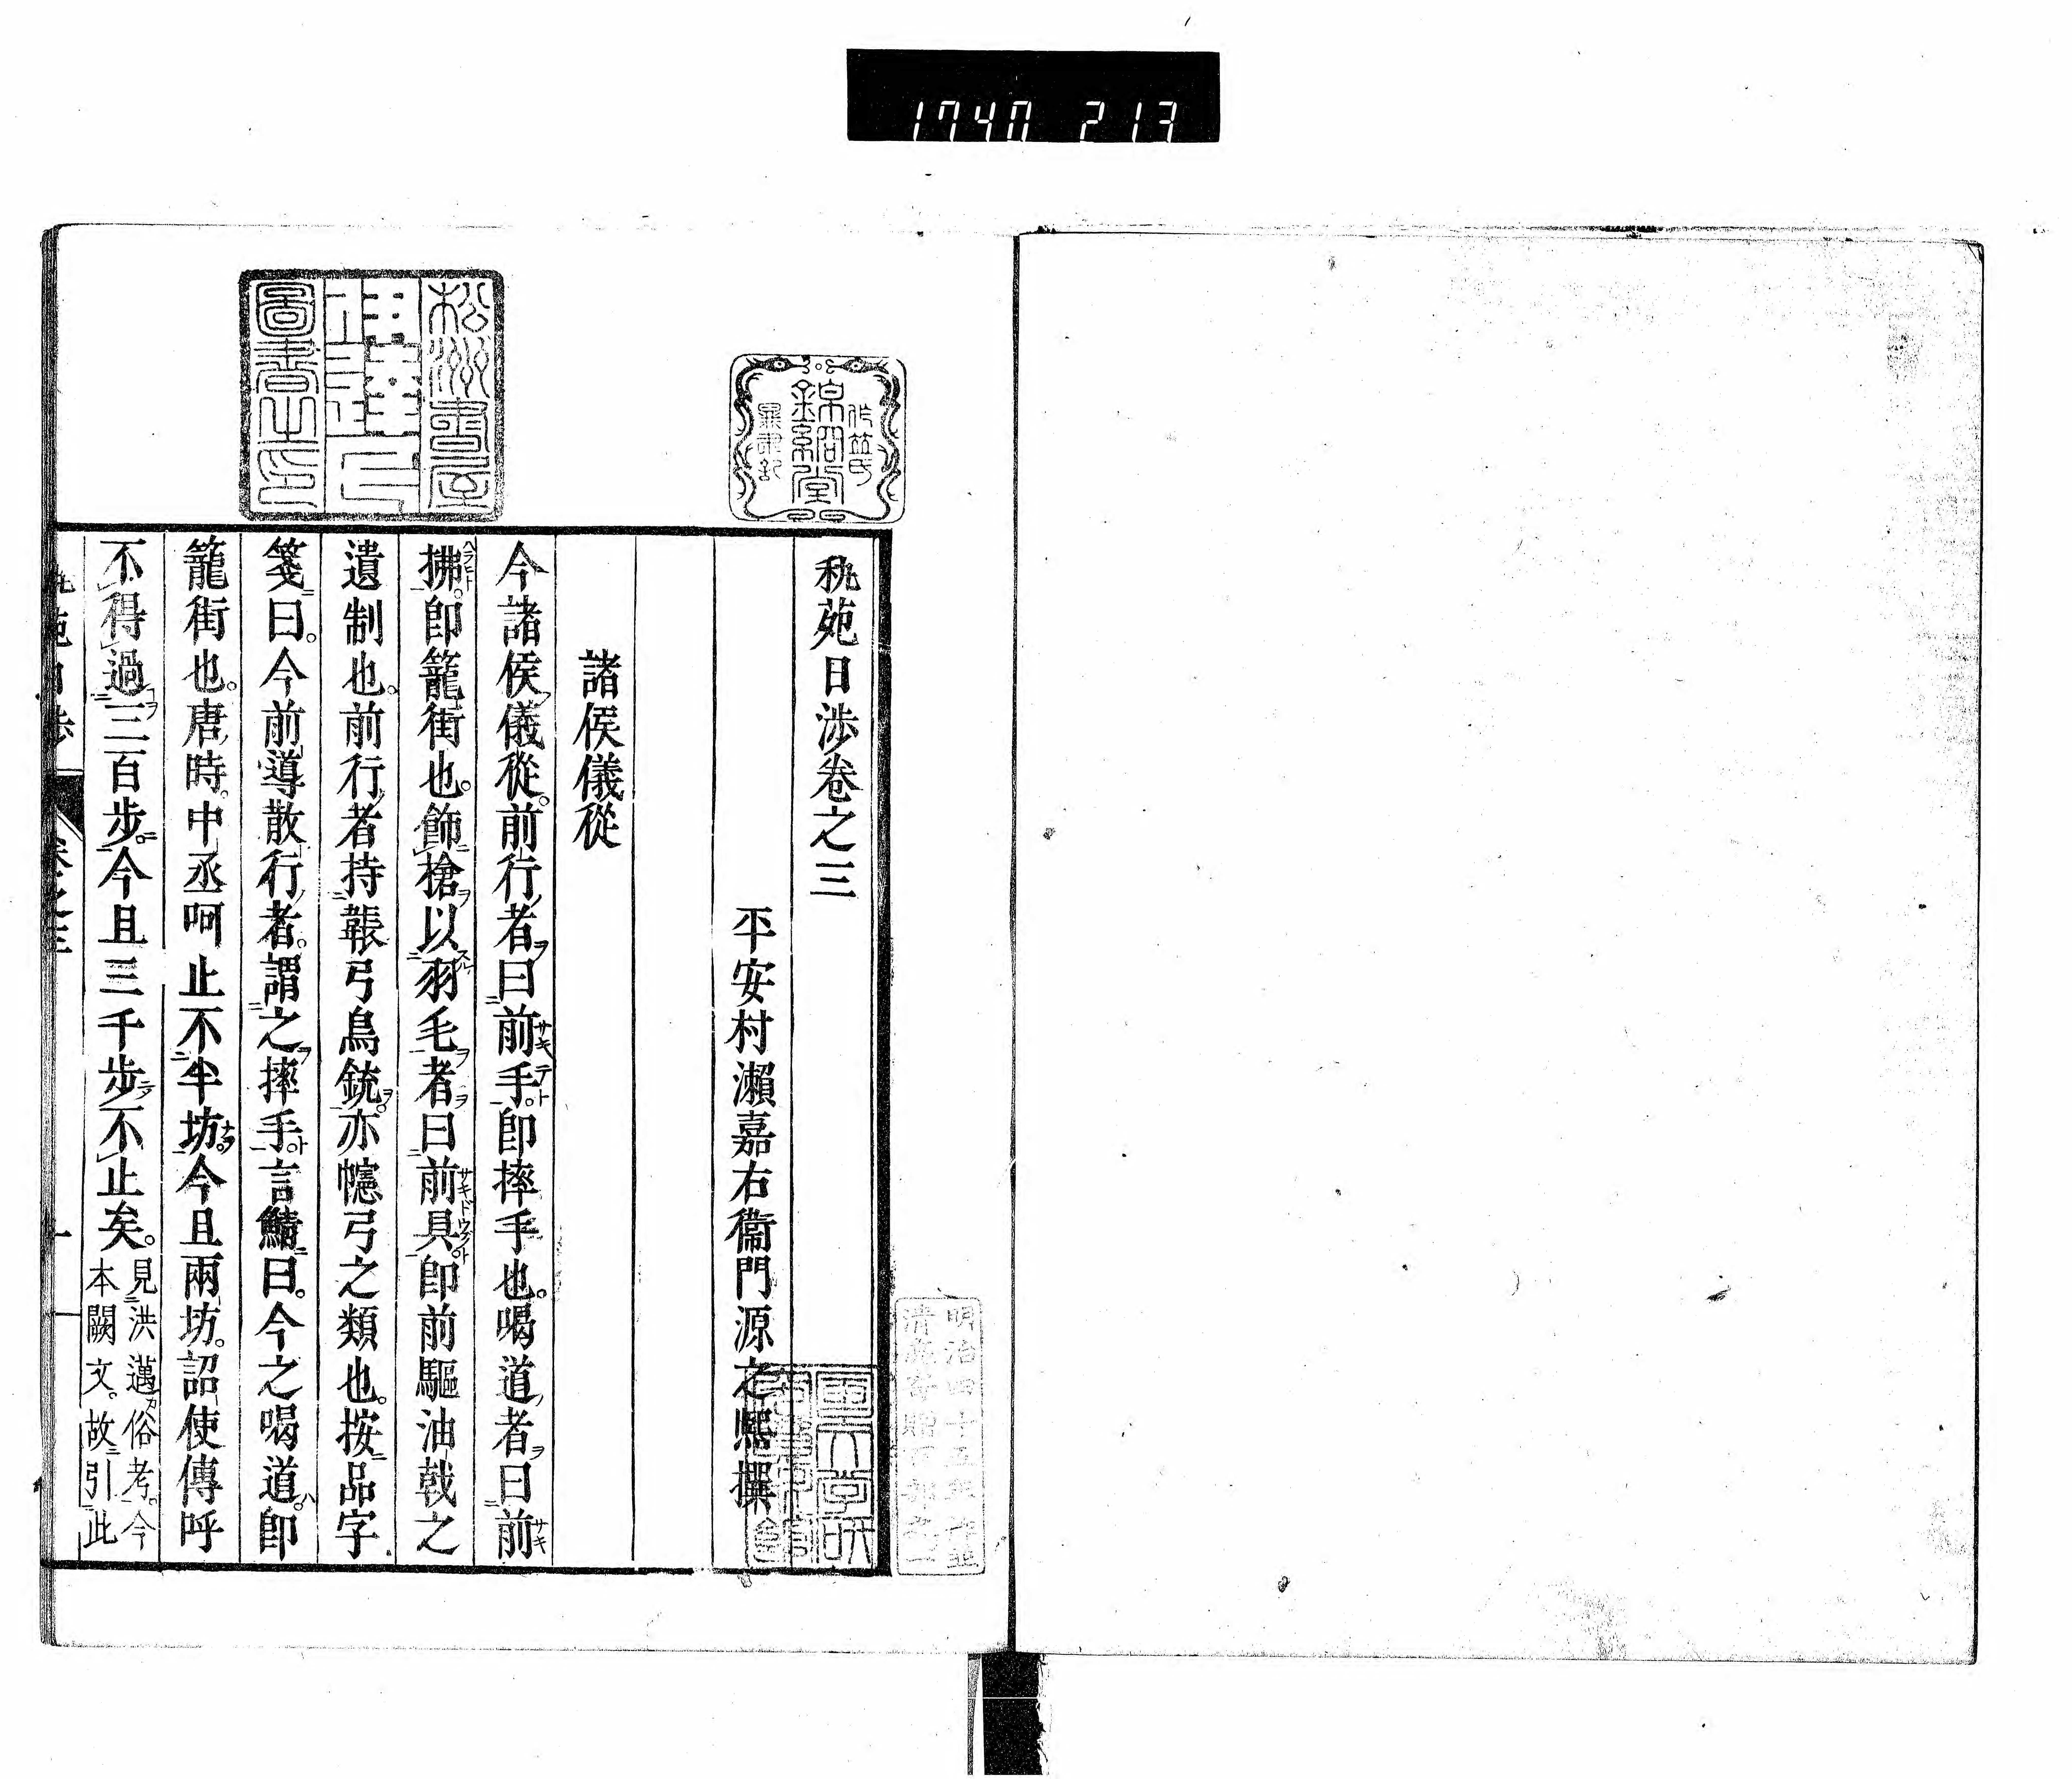 1740 213
秇苑日渉卷之三
平安村瀬嘉右衞門源之熙撰
諸侯儀從
今諸侯儀從。前行者曰前手。卽摔手也。喝道者曰前
拂。卽籠街也。飾槍以羽毛者曰前具。卽前驅油戟之
遺制也。前行者持韔弓鳥銃。亦幰弓之類也。按品字
箋曰。今前導散行者。謂之摔手。言鯖曰。今之喝道。卽
籠街也。唐時。中丞呵止不半坊。今且兩坊。詔使傳呼
不得過三百步。今且三千步不止矣。見洪邁俗考。今
本闕文。故引此
松洲書屋
圖書之印
錦絅堂
明治四十五年